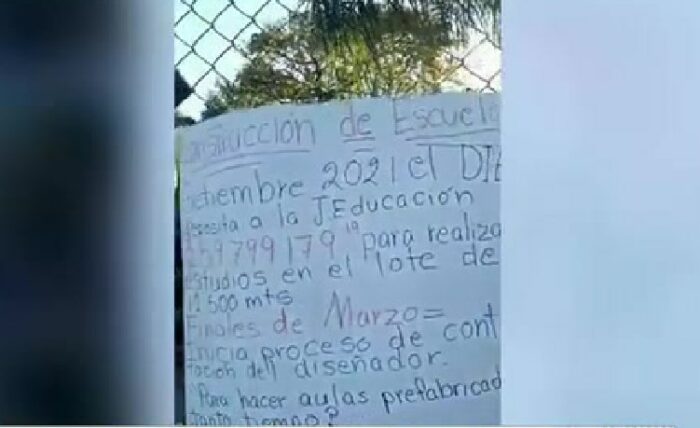 nstrucción de Escuela
tiembre 2021 el DIE
eposita a la J Educación
259799179 19 para realiza
estudios en el lote de
12 500 mts
Finales de Marzo=
Inicia proceso de cont
tación del diseñador.
¿Para hacer aulas prefabricad
tanto tiempo?